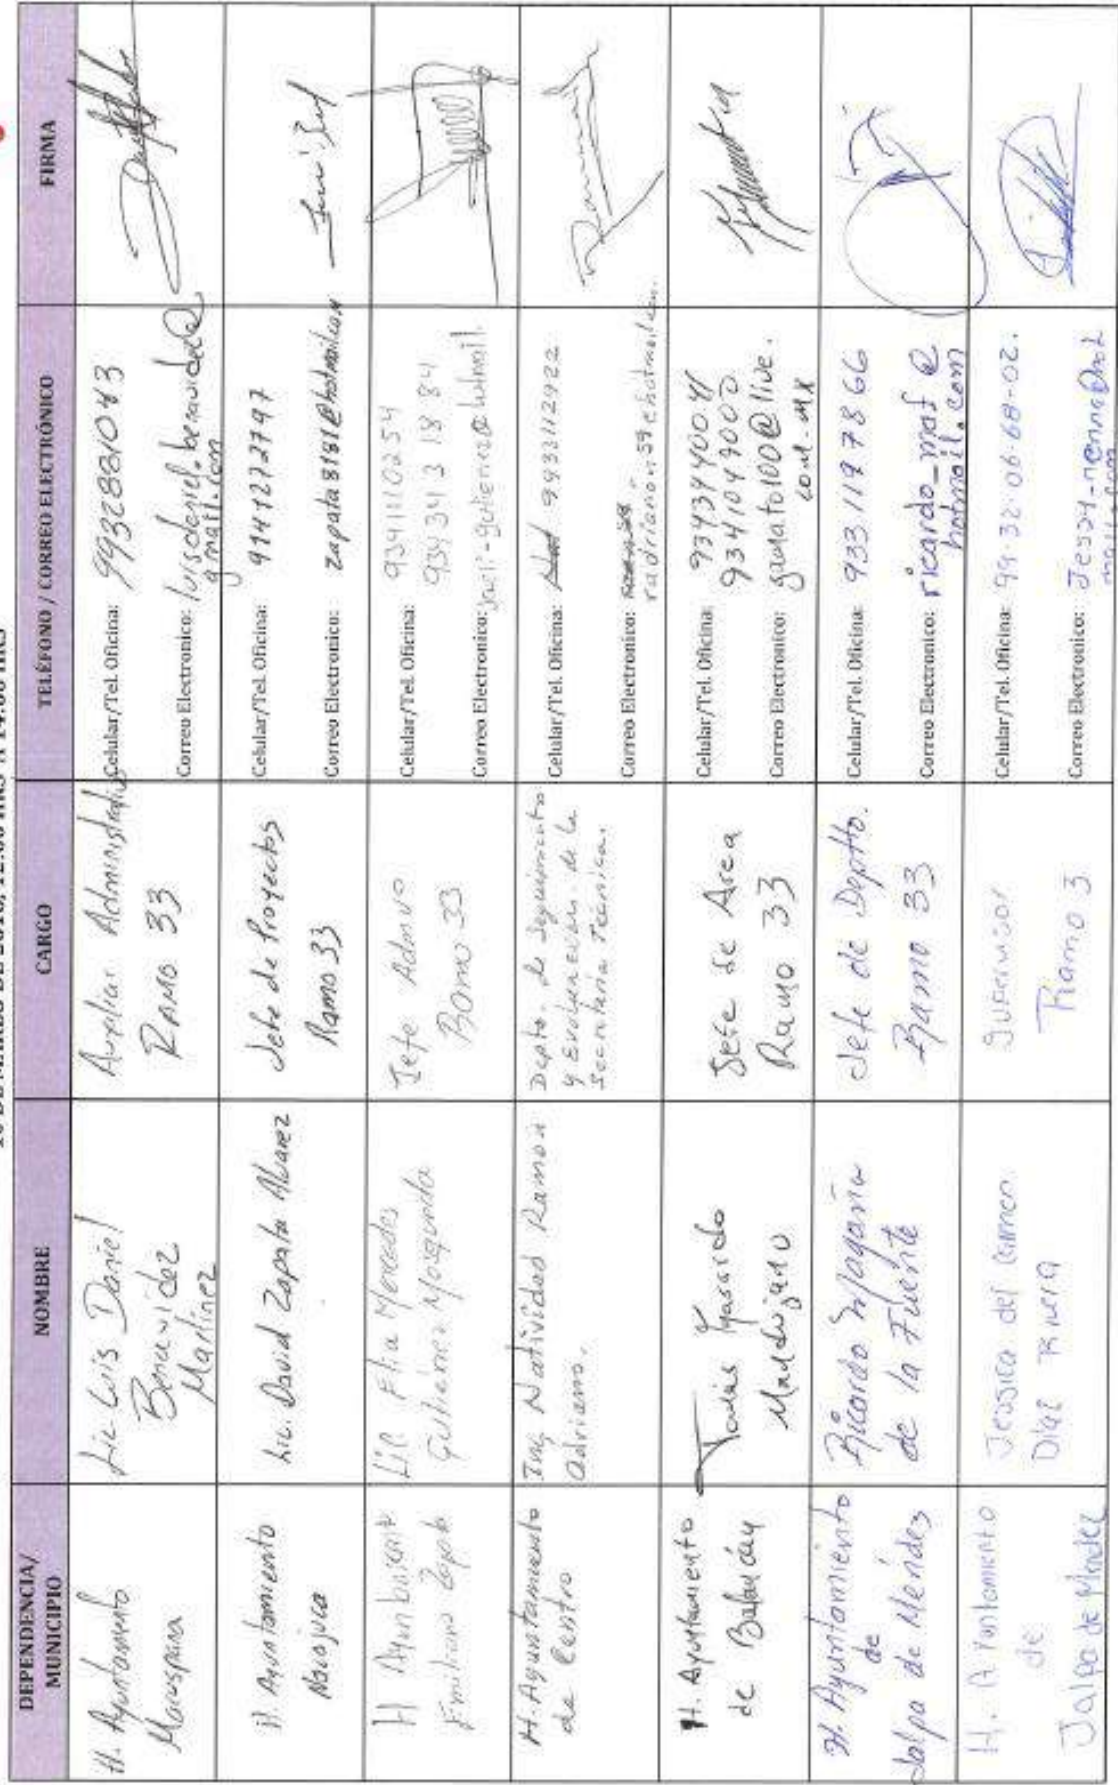 DEPENDENCIA/
MUNICIPIO
NOMBRE
CARGO
TELÉFONO / CORREO ELECTRÓNICO
FIRMA
H. Ayuntamiento
Macuspana
Lic. Luis Daniel
Benavidez
Martinez
Auxiliar Administrativo
Ramo 33
Celular/Tel. Oficina: 9932881043
Correo Electronico: luisdaniel.benavidez@
gmail.com
H. Ayuntamiento
Nacajuca
Lic. David Zapata Alvarez
Jefe de Proyectos
Ramo 33
Celular/Tel. Oficina: 9141272797
Correo Electronico: zapata8181@hotmail.com
H Ayuntamiento
Emiliano Zapata
Lic Elia Mercedes
Gutierrez Mosqueda
Jefe Admvo
Ramo 33
Celular/Tel. Oficina: 9341110254
934 34 3 18 84
Correo Electronico:
H. Ayuntamiento
de Centro
Ing Natividad Ramon
Adriano.
Depto. de Seguimiento
y Evaluacion de la
Secretaria Tecnica.
Celular/Tel. Oficina: 9933112922
Correo Electronico:
radriano59@hotmail.com.
H. Ayuntamiento
de Balancán
Mandujano
Jefe de Area
Ramo 33
Celular/Tel. Oficina: 9343440041
9341049000
Correo Electronico: gamato100@live.
com.mx
H. Ayuntamiento
de
Jalpa de Méndez
Ricardo Magaña
de la Fuente
Jefe de Deptto.
Ramo 33
Celular/Tel. Oficina: 9331197866
Correo Electronico: ricardo_maf@
hotmail.com
H. Ayuntamiento
de
Jalpa de Mendez
Jessica del Carmen
Diaz Rivera
Supervisor
Ramo 3
Celular/Tel. Oficina: 99-32-06-68-02.
Correo Electronico: